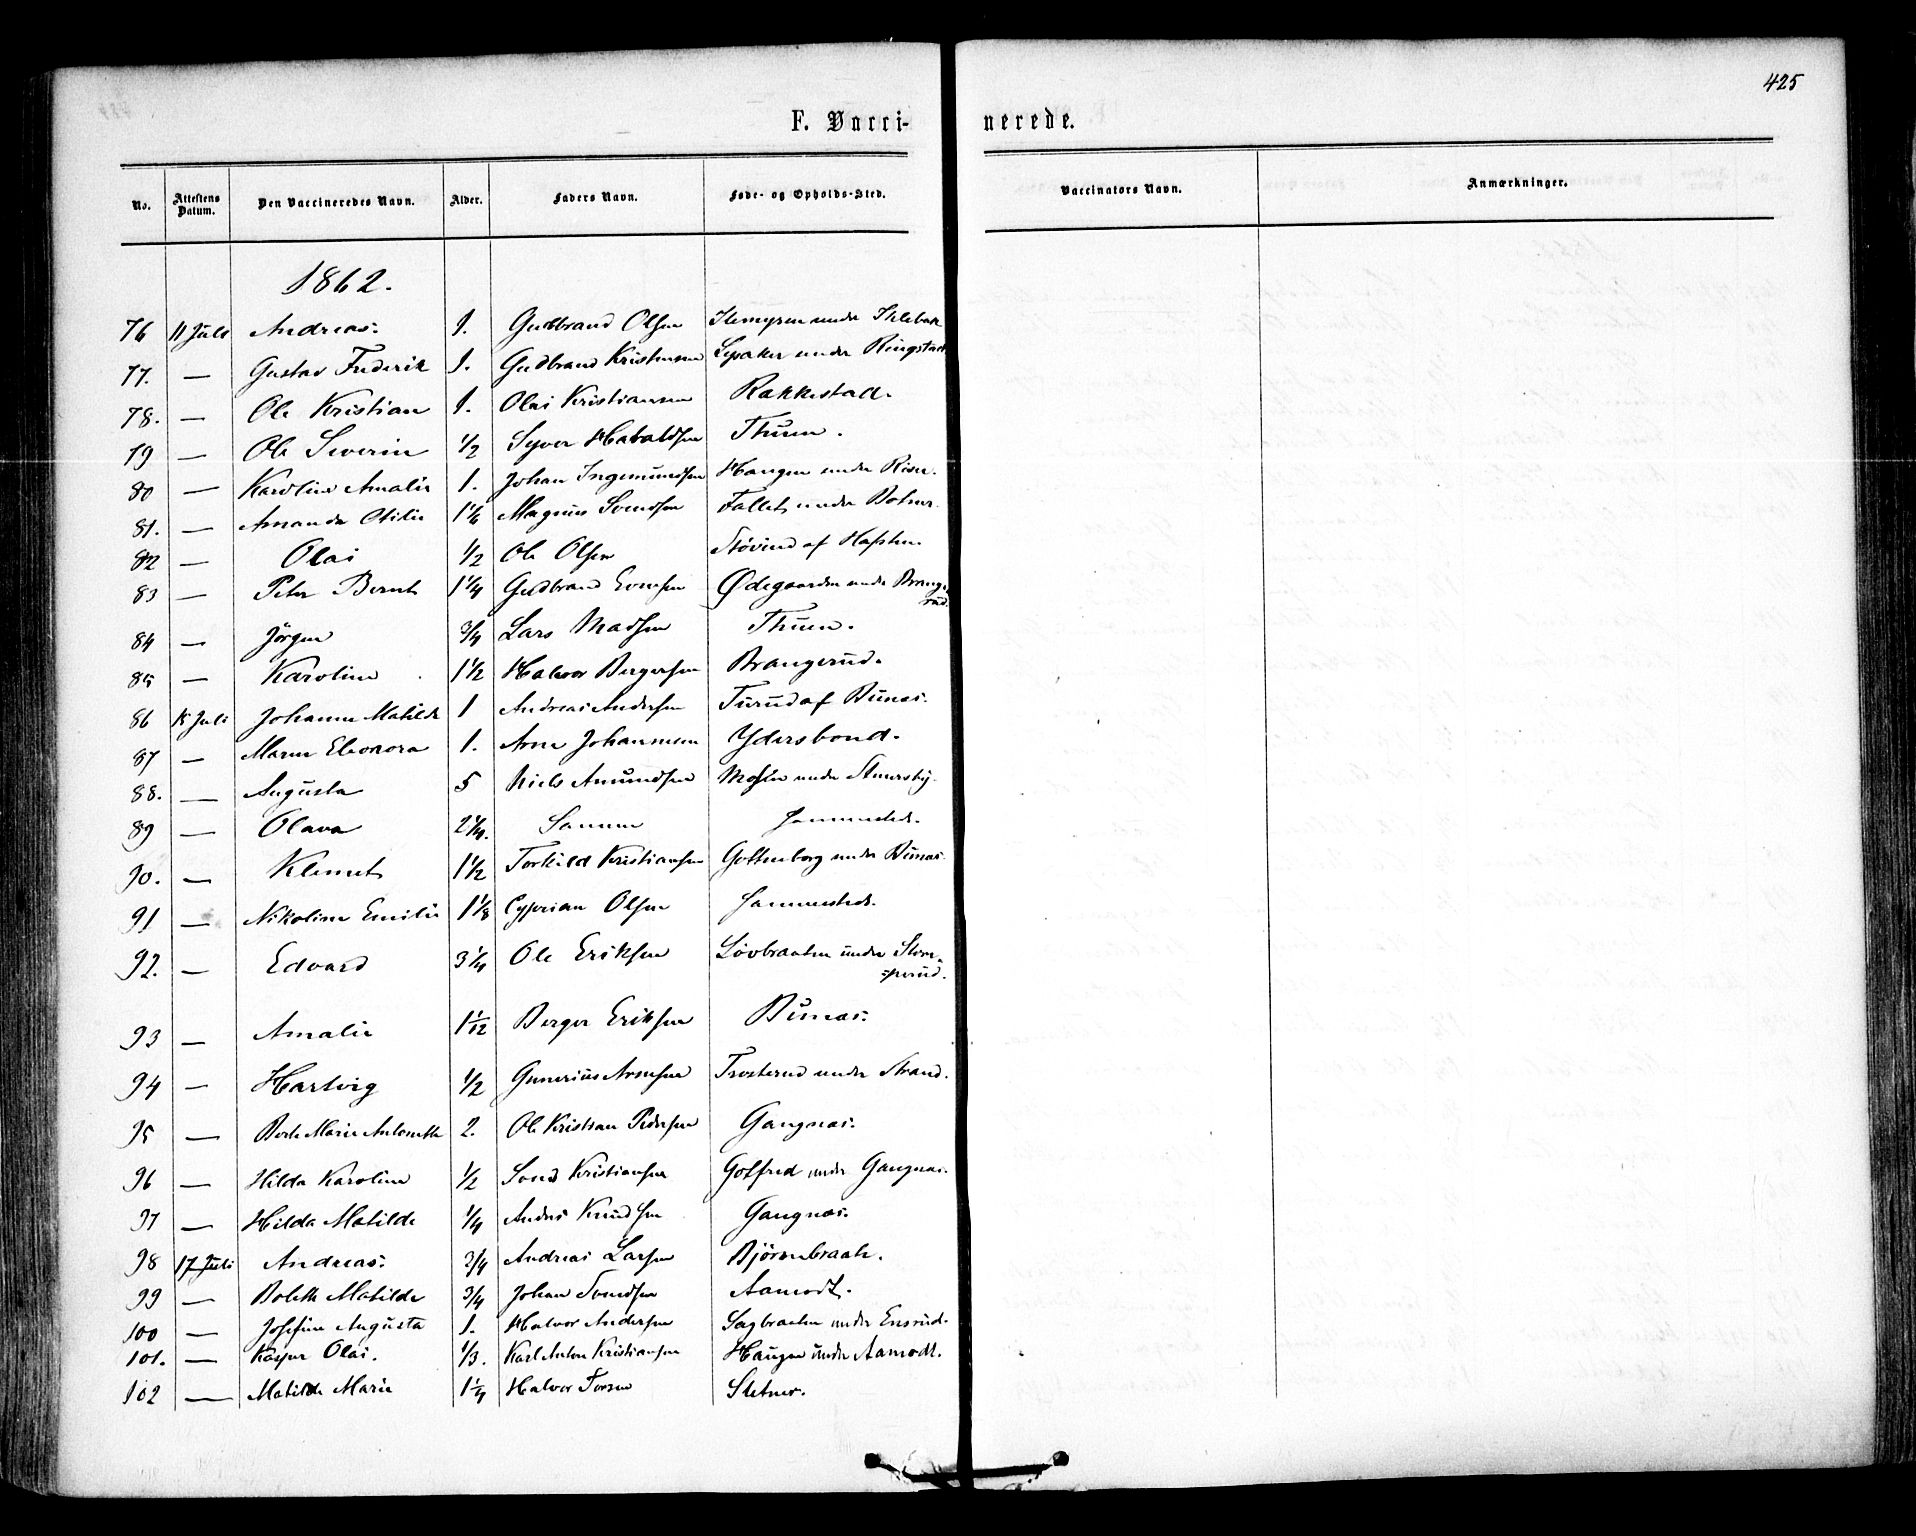 425
F. Vacci- nerede.
No. Attestens Datum. Den Vaccineredes Navn. Alder. Faders Navn. Føde- og Opholds-Sted. Vaccinators Navn. Anmærkninger.
1862.
76 11 Juli Andreas. 1. Gudbrand Olsen under
77. — Gustav Frederik 1. Gudbrand Kristensen under Ringstad
78. — Ole Kristian 1. Olai Kristiansen Rakkestad.
79 — Ole Severin 1/2 Syver Thuen.
80 — Karoline Amalie 1. Johan Ingemundsen Haugen under Risn.
81. — Amanda Otilie 1 1/6 Magnus Svendsen Fallet under Botner.
82 — Olai 1/2 Ole Olsen Støvind af Hafsten.
83 — Peter Bernt 1 1/4 Gudbrand Evensen Ødegaarden under Brange-
rud.
84 — Jörgen 3/4 Lars Madsen Thuen.
85 — Karoline 1 1/2 Halvor Bergersen Brangerud.
86 15 Juli Johanne Matilde 1 Andreas Andersen Turud af Bunæs.
87 — Maren Eleonora 1. Arne Johannesen Ydersbond.
88. — Augusta 5 Niels Amundsen Mosen under
89 — Olava 2 1/4. Samme Sammesteds.
90. — Klemet 1 1/2 Torkild Kristiansen Gottenborg under Bunæs.
91 — Nikoline Emilie 1 1/8 Cyprian Olsen Sammesteds.
92. — Edvard 3 1/4 Ole Eriksen Løvbraaten under Stom-
perud.
93 — Amalie 1 1/12 Berger Eriksen Bunæs.
94 — Hartvig 1/2 Gunerius Arnesen Trosterud under Strand.
95 — Berte Marie Antonette 2. Ole Kristian Pedersen Gangnæs.
96 — Hilda Karoline 1/2 Kristiansen Gotfred under Gangnæs.
97 — Hilda Matilde 1/4 Anders Knudsen Gangnæs.
98 17 Juli Andreas. 3/4 Andreas Larsen Björnebraate.
99 — Bolette Matilde 3/4 Johan Svendsen Aamodt.
100 — Josefine Augusta 1. Halvor Andersen Sagbraaten under Ensrud.
101. — Kasper Olai. 1/3. Karl Anton Kristiansen Haugen under Aamodt.
102 — Matilde Marie 1 1/4 Halvor Torsen Sletner.